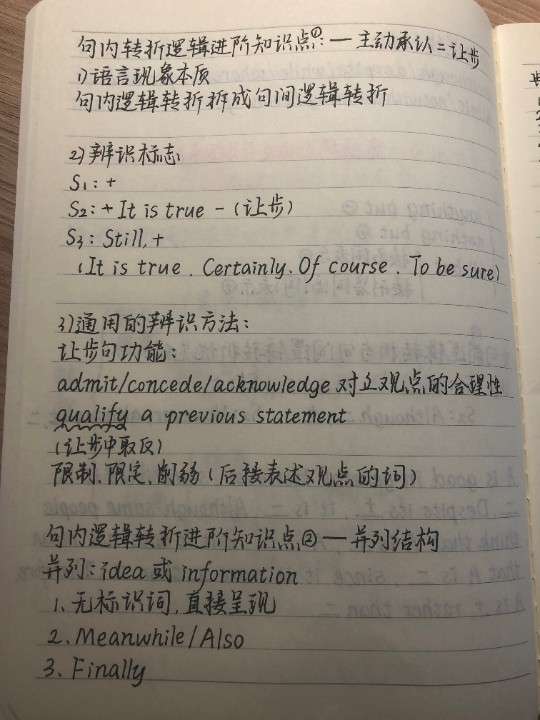 句内转折逻辑进阶知识点①:一主动承认=让步
1)语言现象本质
句内逻辑转折拆成句间逻辑转折
2)辨识标志
S1:+
S2:+ It is true -(让步)
S3:Still,+
(It is true. Certainly. Of course. To be sure)
3)通用的辨识方法:
让步句功能:
admit/concede/acknowledge 对立观点的合理性
qualify a previous statement
(让步中取反)
限制、限定、削弱(后接表述观点的词)
句内逻辑转折进阶知识点②—并列结构
并列:idea 或 information
1、无标识词,直接呈现
2. Meanwhile/Also
3. Finally